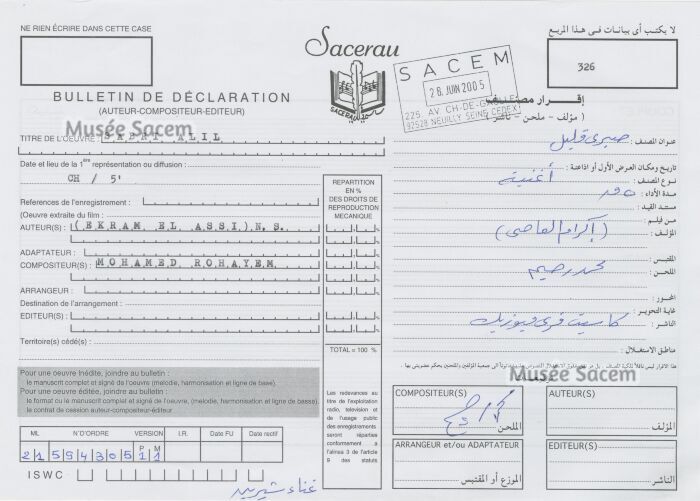 NE RIEN ÉCRIRE DANS CETTE CASE
لا يكتب أى بيانات فى هذا المربع
326
Sacerau
SACERAU
SACEM
28 JUIN 2005
225 AV CH-DE-GAULLE
92528 NEUILLY SEINE CEDEX
BULLETIN DE DÉCLARATION
(AUTEUR-COMPOSITEUR-EDITEUR)
إقرار مصنف
( مؤلف - ملحن - ناشر )
Musée Sacem
TITRE DE L'OEUVRE : SABRI ALIL
عنوان المصنف : صبرى قليل
Date et lieu de la 1ère représentation ou diffusion :
تاريخ ومكان العرض الأول أو اذاعتة :
CH / 5'
نوع المصنف : أغنية
مدة الأداء : ٥ ق
References de l'enregistrement :
مستند القيد :
(Oeuvre extraite du film :
من فيلم :
AUTEUR(S) : (EKRAM EL ASSI) N.S.
المؤلف : (إكرام العاصى)
ADAPTATEUR :
المقتبس :
COMPOSITEUR(S) : MOHAMED ROHAYEM
الملحن : محمد رحيم
ARRANGEUR :
المحور :
Destination de l'arrangement :
غاية التحوير :
EDITEUR(S) :
الناشر : كاسيت فرى ميوزيك
Territoire(s) cédé(s) :
مناطق الاستغلال :
REPARTITION
EN %
DES DROITS DE
REPRODUCTION
MECANIQUE
TOTAL = 100 %
Les redevances au
titre de l'exploitation
radio, television et
de l'usage public
des enregistrements
seront réparties
conformement a
l'alinea 3 de l'article
9 des statuts
Pour une oeuvre Inédite, joindre au bulletin :
le manuscrit complet et signé de l'oeuvre (melodie, harmonisation et ligne de basse).
Pour une oeuvre éditée, joindre au bulletin :
le format ou le manuscrit complet et signé de l'oeuvre, (melodie, harmonisation et ligne de basse),
le contrat de cession auteur-compositeur-éditeur
Musée Sacem
COMPOSITEUR(S)
الملحن
AUTEUR(S)
المؤلف
ARRANGEUR et/ou ADAPTATEUR
الموزع أو المقتبس
EDITEUR(S)
الناشر
ML N'D'ORDRE VERSION I.R. Date FU Date rectif
P M
21 594305 11
ISWC
غناء شيرين